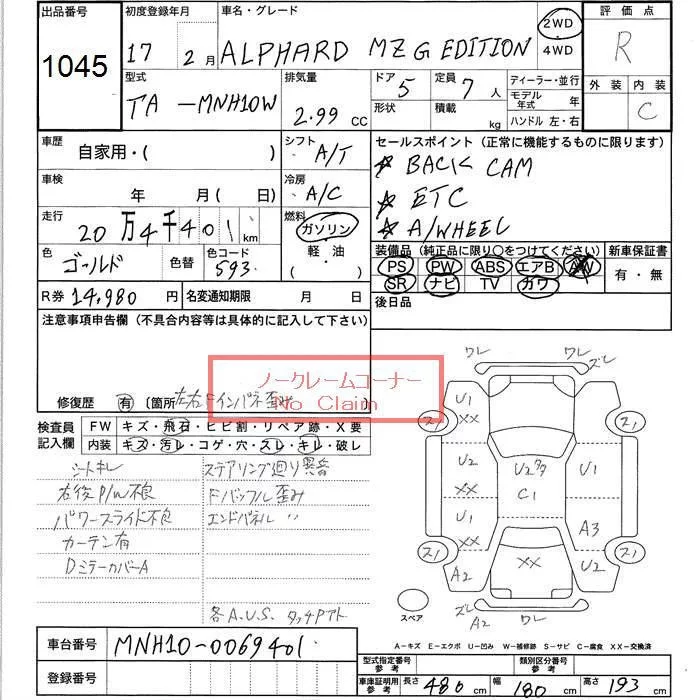 出品番号 初度登録年月 車名・グレード 評価点
1045 17 2月 ALPHARD MZ G EDITION 2WD 4WD R
型式 排気量 ドア 定員 ディーラー・並行 外装 内装
TA -MNH10W 2.99 CC 5 7人 モデル年式 年 C
形状 積載 kg ハンドル 左・右
車歴 自家用・( ) シフト A/T セールスポイント (正常に機能するものに限ります)
☆ BACK CAM
車検 年 月( 日) 冷房 A/C ☆ ETC
走行 20万4千401km 燃料 ガソリン ☆ A/WHEEL
軽・油
( )
色 ゴールド 色替 色コード 593 装備品 (純正品に限り○をつけてください) 新車保証書
PS PW ABS エアB A/W 有・無
SR ナビ TV カワ
R券 14,980円 名変通知期限 月 日 後日品
注意事項申告欄 (不具合内容等は具体的に記入して下さい)
ノークレームコーナー
No Claim
修復歴 有 〔箇所 左右Fインパネ歪み 〕
検査員記入欄 FW キズ・飛石・ヒビ割・リペア跡・X要
内装 キズ・汚レ・コゲ・穴・スレ・キレ・破レ
シートキレ ステアリング廻り異音
右後P/W不良 Fバッフル歪み
パワースライド不良 エンドパネル 〃
カーテン有
DミラーカバーA
各A.U.S. タッチPアト
ワレ ワレ ズレ
ス1 U1 XX ス1
U2 U2タタ U1
XX C1
U1 A3
XX
ス1 XX ス1
A2 U2
スペア ズレ A2 ワレ
A-キズ E-エクボ U-凹み W-補修跡 S-サビ C-腐食 XX-交換済
車台番号 MNH10-0069401
登録番号
型式指定番号 参考 類別区分番号 参考
車庫証明用 参考 長さ 480 cm 幅 180 cm 高さ 193 cm